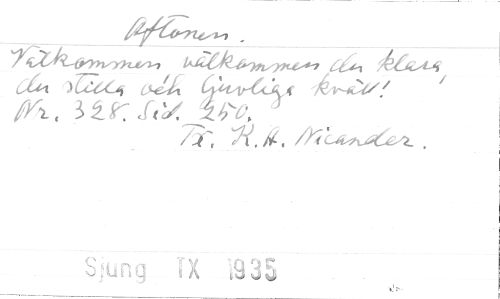 Aftonen.
Välkommen välkommen du klara,
du stilla och ljuvliga kväll!
Nr. 328. Sid. 250.
Tx. K.A. Nicander.
Sjung TX 1935